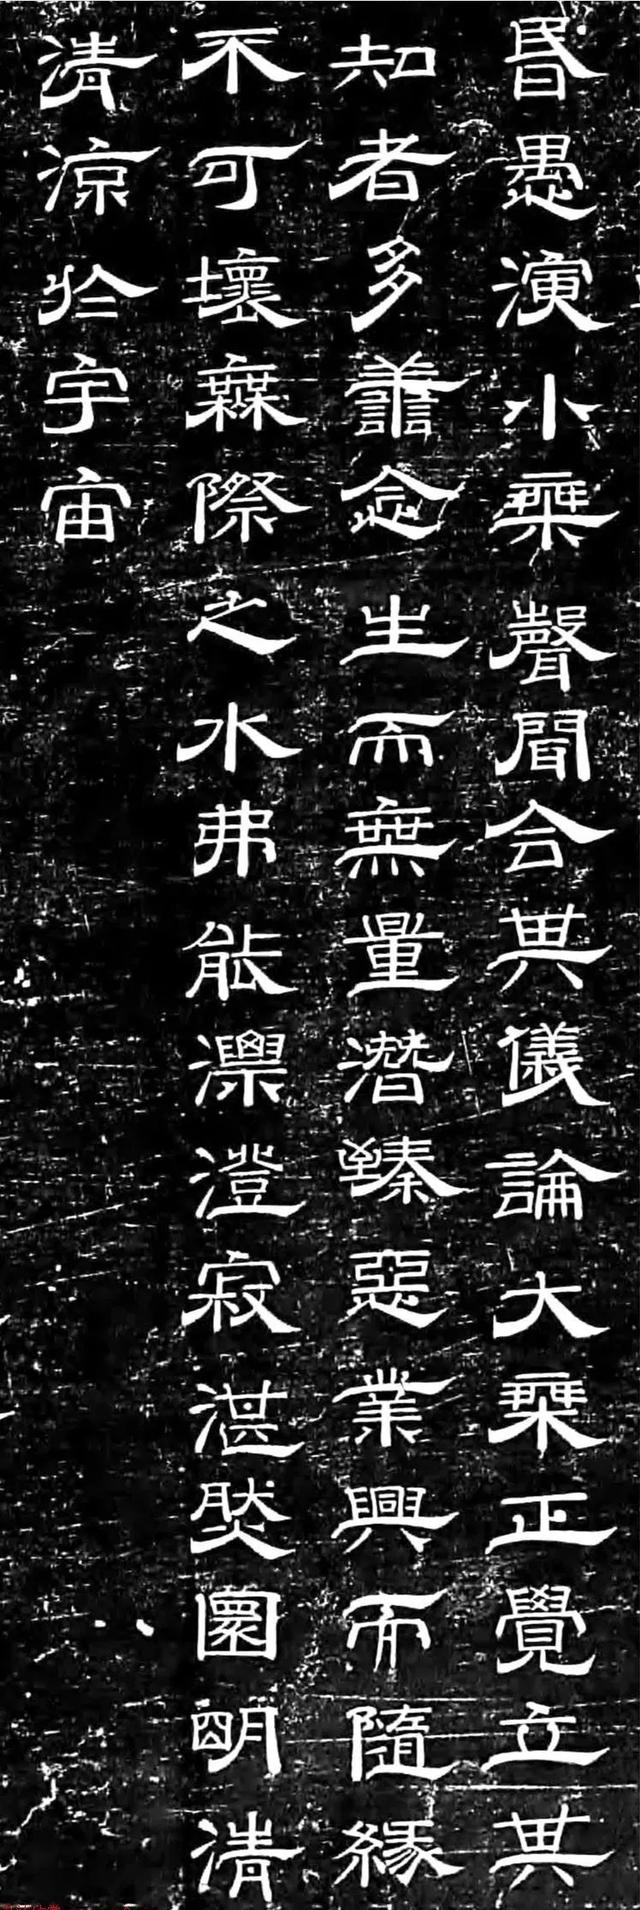 昏愚演小乘聲聞合其儀論大乘正覺立其
知者多譱念生而無量潜臻惡業興而隨緣
不可壞無際之水弗能澄寂湛然圓明清
清涼於宇宙